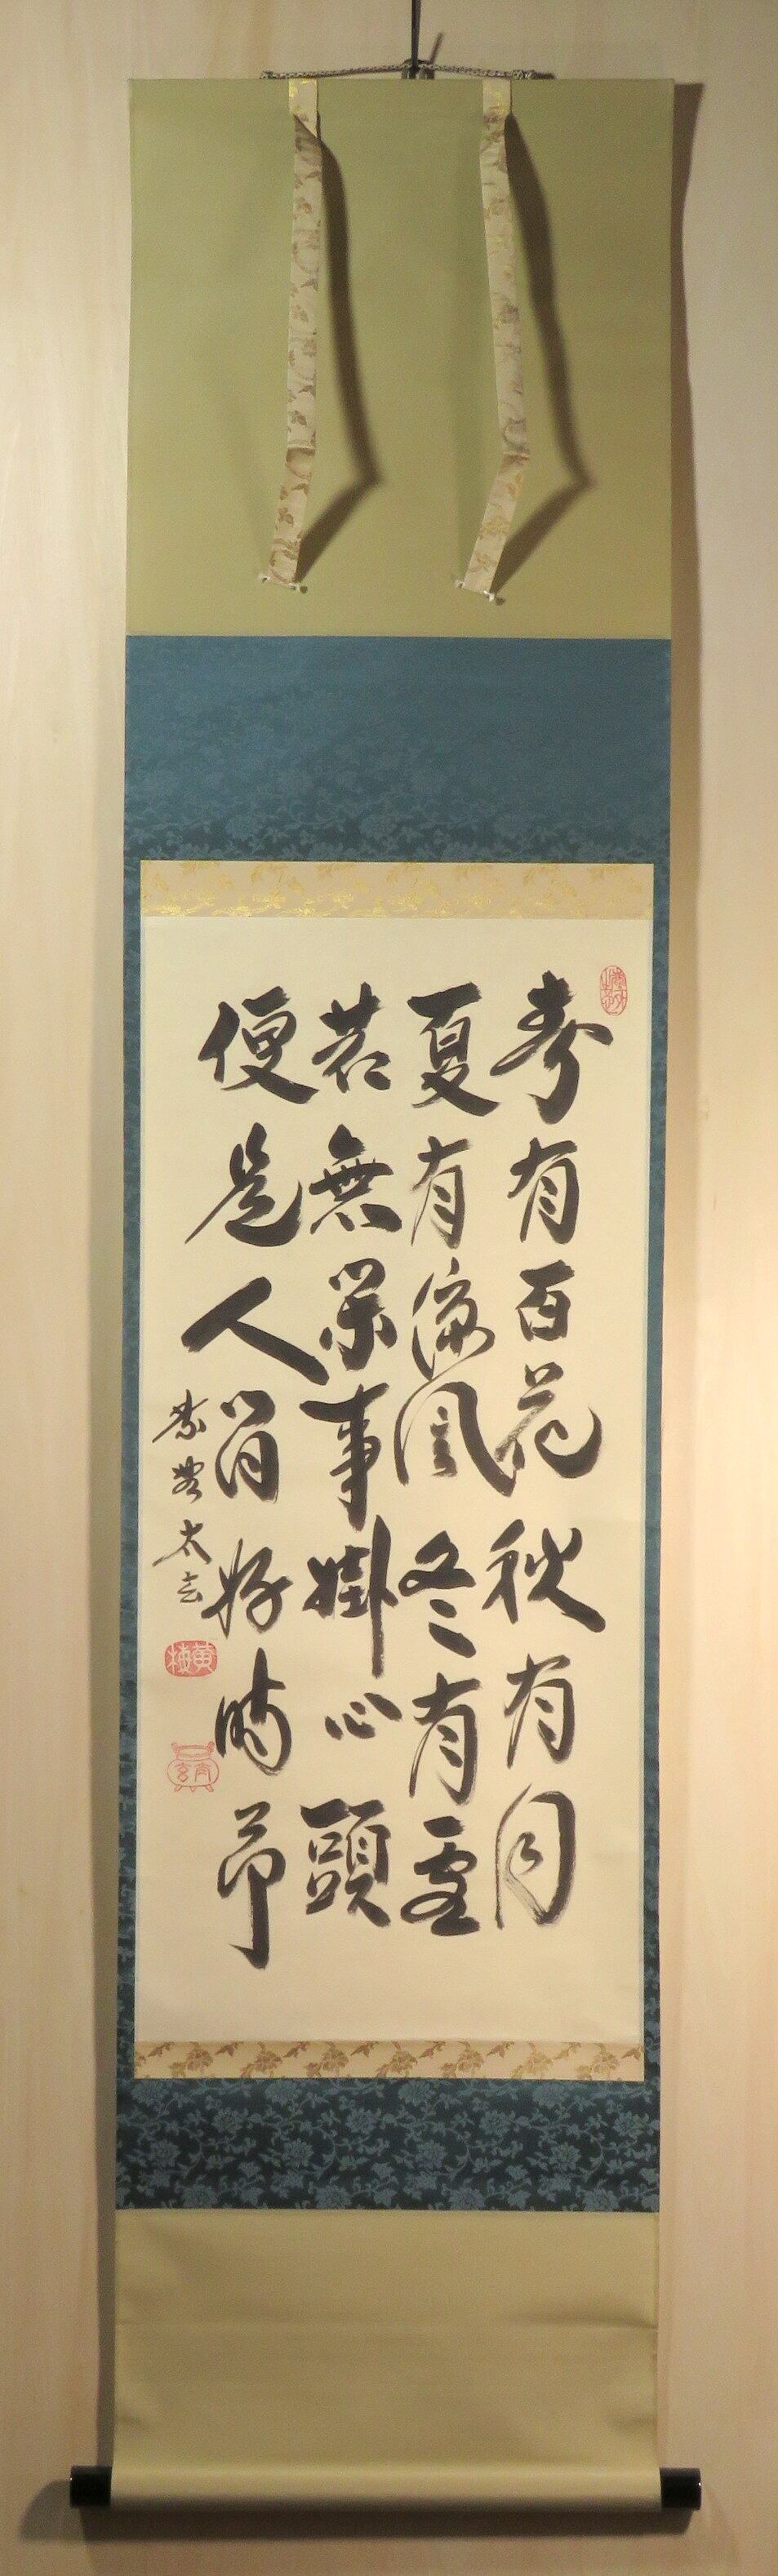 春有百花秋有月
夏有涼風冬有雪
若無閑事掛心頭
便是人間好時節
紫野太玄
黄梅